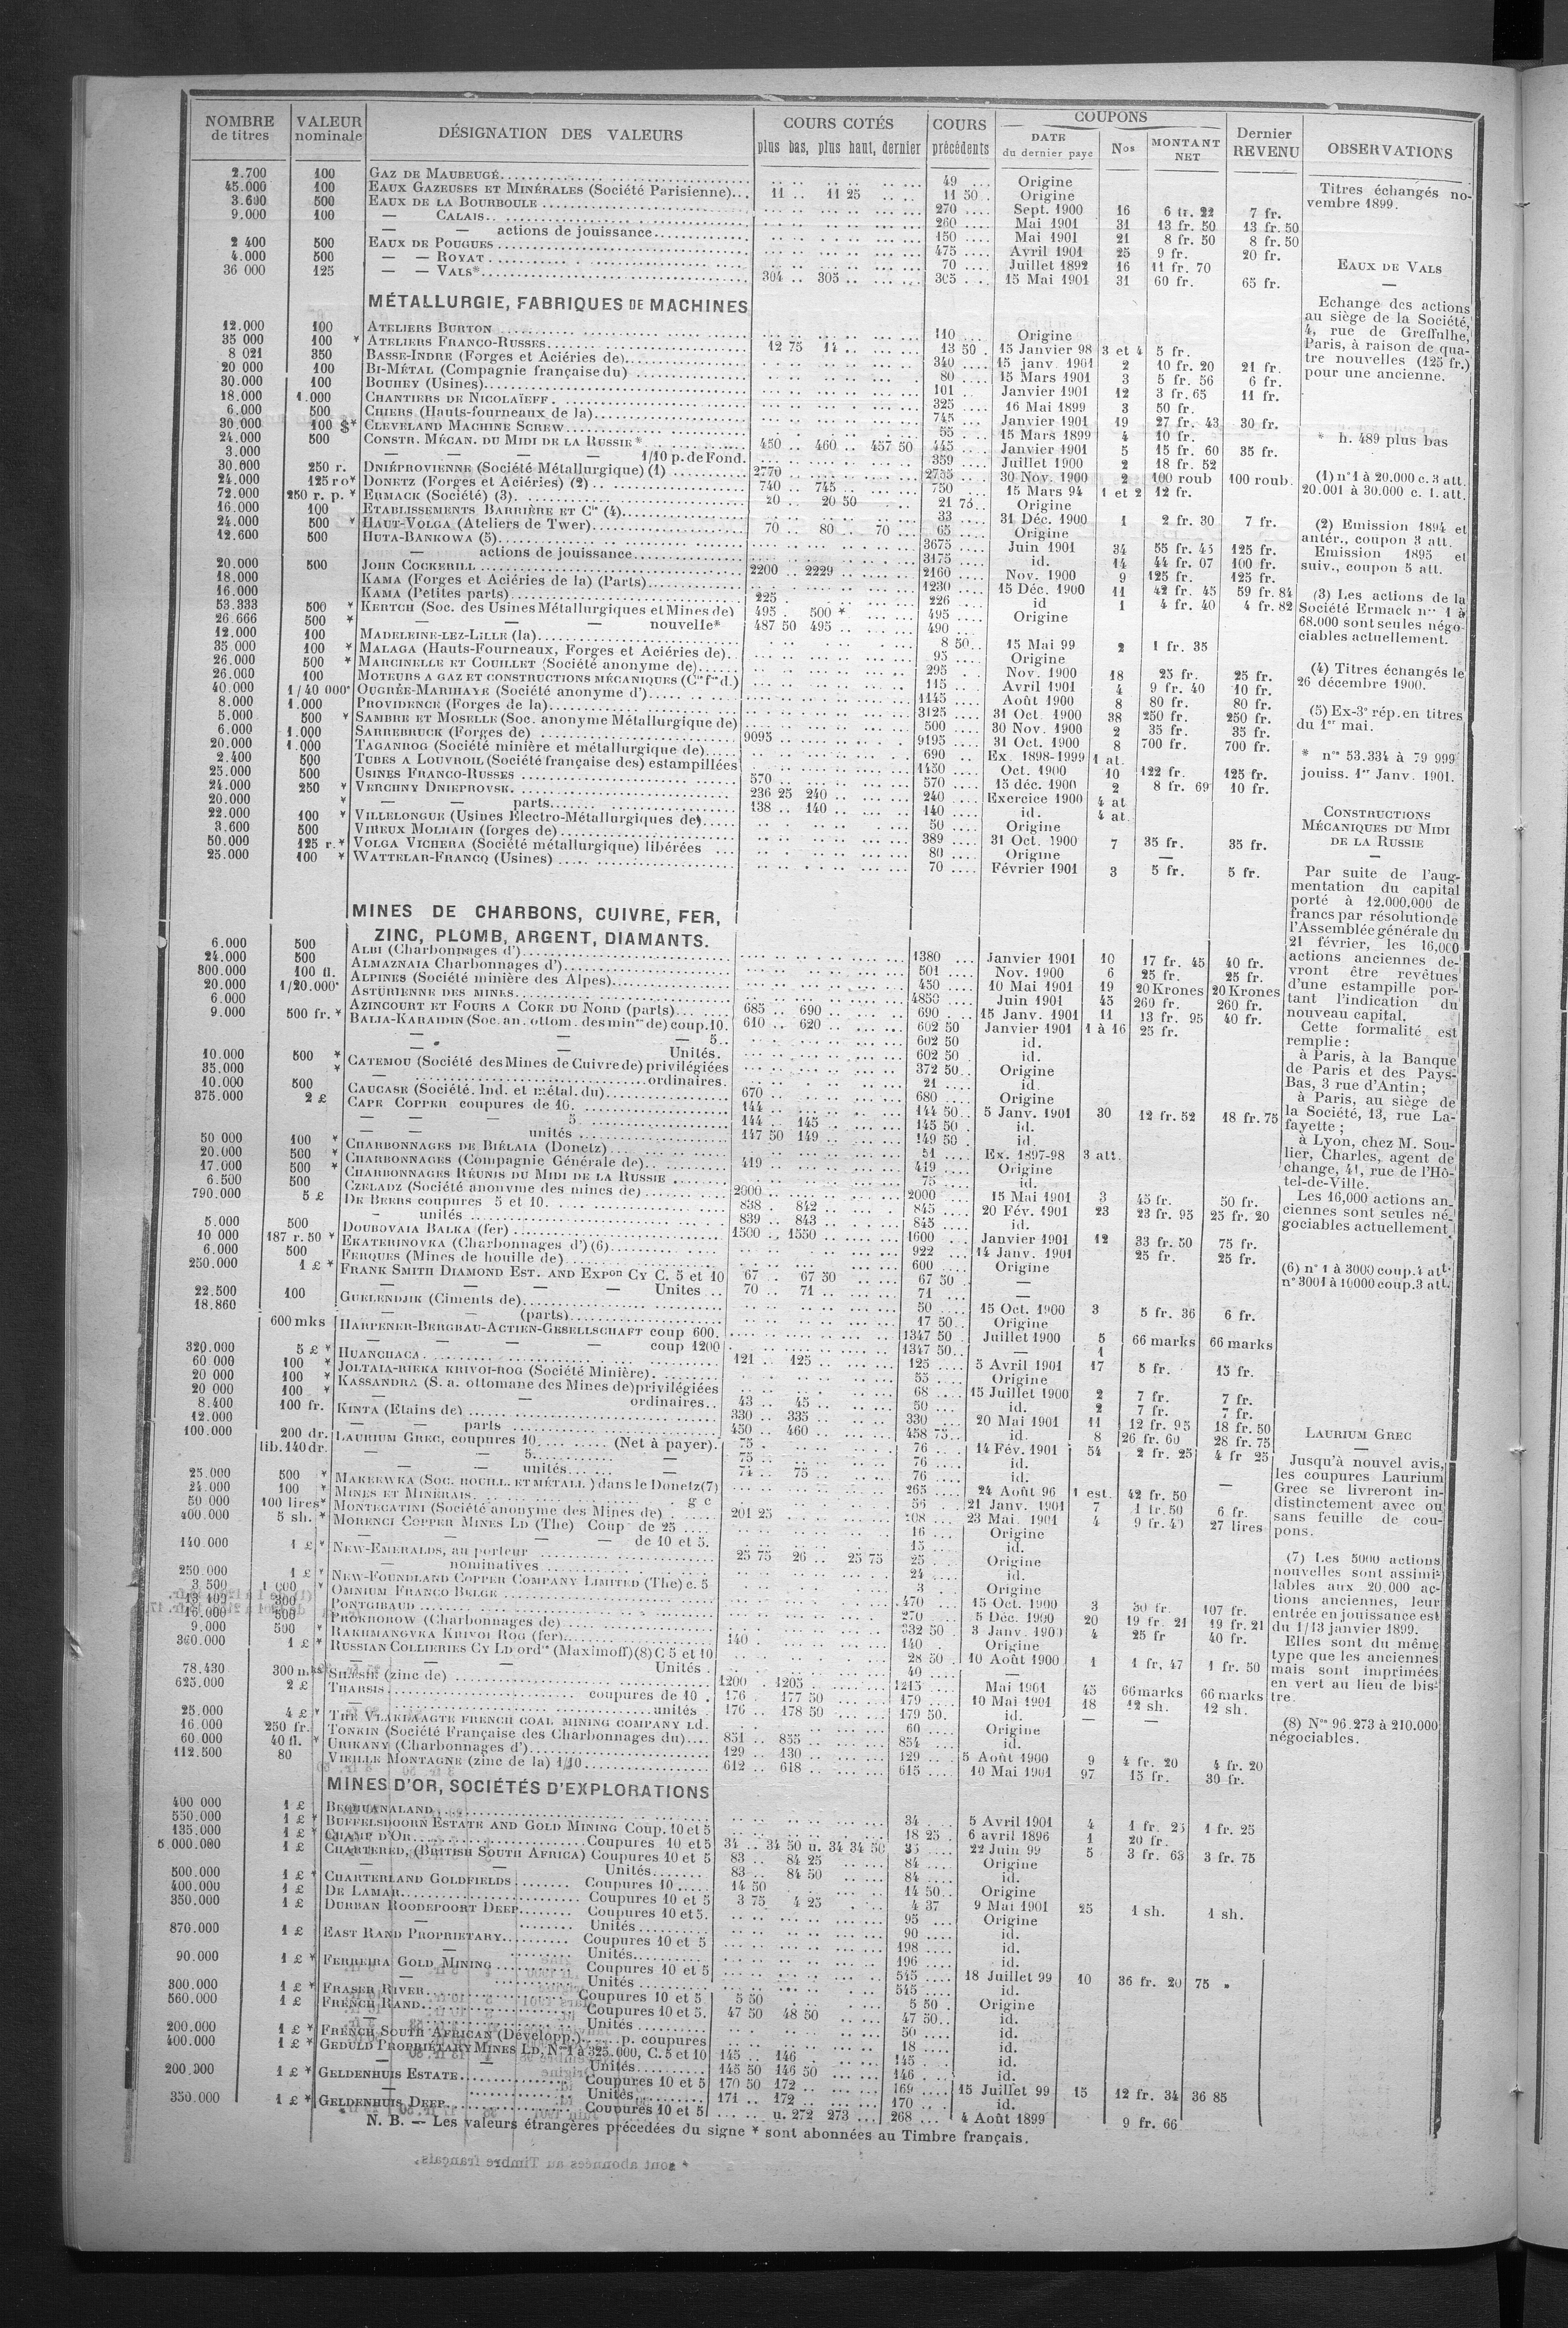 NOMBRE de titres | VALEUR nominale | DÉSIGNATION DES VALEURS | COURS COTÉS plus bas, plus haut, dernier | COURS précédents | COUPONS DATE du dernier paye | Nos | MONTANT NET | Dernier REVENU | OBSERVATIONS
2.700 100 GAZ DE MAUBEUGE 49 Origine
45.000 100 EAUX GAZEUSES ET MINÉRALES (Société Parisienne) 11 .. 11 25 11 50 Origine
3.600 500 EAUX DE LA BOURBOULE 270 Sept. 1900 16 6 fr. 22 7 fr.
9.000 100 — CALAIS 260 Mai 1901 31 13 fr. 50 13 fr. 50
— — actions de jouissance 150 Mai 1901 21 8 fr. 50 8 fr. 50
2 400 500 EAUX DE POUGUES 475 Avril 1901 25 9 fr. 20 fr.
4.000 500 — — ROYAT 70 Juillet 1892 16 11 fr. 70
36 000 125 — — VALS* 304 .. 305 .. 305 15 Mai 1901 31 60 fr. 65 fr.
MÉTALLURGIE, FABRIQUES DE MACHINES
12.000 100 ATELIERS BURTON 110 Origine
35 000 100 * ATELIERS FRANCO-RUSSES 12 75 14 .. 13 50 15 Janvier 98 3 et 4 5 fr.
8 021 350 BASSE-INDRE (Forges et Aciéries de) 340 15 janv. 1901 2 10 fr. 20 21 fr.
20 000 100 BI-MÉTAL (Compagnie française du) 80 15 Mars 1901 3 5 fr. 56 6 fr.
30.000 100 BOUHEY (Usines) 101 Janvier 1901 12 3 fr. 65 11 fr.
18.000 1.000 CHANTIERS DE NICOLAÏEFF 325 16 Mai 1899 3 50 fr.
6.000 500 CHIERS (Hauts-fourneaux de la) 745 Janvier 1901 19 27 fr. 43 30 fr.
30.000 100 $* CLEVELAND MACHINE SCREW 55 15 Mars 1899 4 10 fr.
24.000 500 CONSTR. MÉCAN. DU MIDI DE LA RUSSIE* 450 .. 460 .. 457 50 445 Janvier 1901 5 15 fr. 60 35 fr.
3.000 — — — — 1/10 p. de Fond. 359 Juillet 1900 2 18 fr. 52
30.600 250 r. DNIÉPROVIENNE (Société Métallurgique) (1) 2770 2755 30 Nov. 1900 2 100 roub 100 roub.
24.000 125 r o* DONETZ (Forges et Aciéries) (2) 740 .. 745 750 15 Mars 94 1 et 2 12 fr.
72.000 250 r. p. * ERMACK (Société) (3) 20 .. 20 50 21 75 Origine
16.000 100 ETABLISSEMENTS BARRIÈRE ET Cie (4) 33 31 Déc. 1900 1 2 fr. 30 7 fr.
24.000 500 * HAUT-VOLGA (Ateliers de Twer) 70 .. 80 .. 70 65 Origine
12.600 500 HUTA-BANKOWA (5) 3675 Juin 1901 34 55 fr. 45 125 fr.
— actions de jouissance 3175 id. 14 44 fr. 07 100 fr.
20.000 500 JOHN COCKERILL 2200 .. 2229 2160 Nov. 1900 9 125 fr. 125 fr.
18.000 KAMA (Forges et Aciéries de la) (Parts) 1230 15 Déc. 1900 11 42 fr. 45 59 fr. 84
16.000 KAMA (Petites parts) 225 226 id 1 4 fr. 40 4 fr. 82
53.333 500 * KERTCH (Soc. des Usines Métallurgiques et Mines de) 495 . 500 * 495 Origine
26.666 500 * — — — nouvelle* 487 50 495 490
12.000 100 MADELEINE-LEZ-LILLE (la) 8 50 15 Mai 99 2 1 fr. 35
35 000 100 * MALAGA (Hauts-Fourneaux, Forges et Aciéries de) 95 Origine
26.000 500 * MARCINELLE ET COUILLET (Société anonyme de) 295 Nov. 1900 18 25 fr. 25 fr.
26.000 100 MOTEURS A GAZ ET CONSTRUCTIONS MÉCANIQUES (Cie fse d.) 115 Avril 1901 4 9 fr. 40 10 fr.
40.000 1/40 000e OUGRÉE-MARIHAYE (Société anonyme d') 1145 Août 1900 8 80 fr. 80 fr.
8.000 1.000 PROVIDENCE (Forges de la) 3125 31 Oct. 1900 38 250 fr. 250 fr.
5.000 500 * SAMBRE ET MOSELLE (Soc. anonyme Métallurgique de) 500 30 Nov. 1900 2 35 fr. 35 fr.
6.000 1.000 SARREBRUCK (Forges de) 9095 9195 31 Oct. 1900 8 700 fr. 700 fr.
20.000 1.000 TAGANROG (Société minière et métallurgique de) 690 Ex. 1898-1999 1 at.
2.400 500 TUBES A LOUVROIL (Société française des) estampillées 1450 Oct. 1900 10 122 fr. 125 fr.
25.000 500 USINES FRANCO-RUSSES 570 570 15 déc. 1900 2 8 fr. 69 10 fr.
24.000 250 * VERCHNY DNIEPROVSK 236 25 240 240 Exercice 1900 4 at
20.000 * — — parts 138 .. 140 140 id. 4 at.
22.000 100 * VILLELONGUE (Usines Electro-Métallurgiques de) 50 Origine
3.600 500 VIREUX MOLHAIN (forges de) 389 31 Oct. 1900 7 35 fr. 35 fr.
50.000 125 r.* VOLGA VICHERA (Société métallurgique) libérées 80 Origine —
25.000 100 * WATTELAR-FRANCQ (Usines) 70 Février 1901 3 5 fr. 5 fr.
MINES DE CHARBONS, CUIVRE, FER,
ZINC, PLOMB, ARGENT, DIAMANTS.
6.000 500 ALBI (Charbonnages d') 1380 Janvier 1901 10 17 fr. 45 40 fr.
24.000 500 ALMAZNAIA Charbonnages d') 501 Nov. 1900 6 25 fr. 25 fr.
300.000 100 fl. ALPINES (Société minière des Alpes) 450 10 Mai 1901 19 20 Krones 20 Krones
20.000 1/20.000e ASTURIENNE DES MINES 4850 Juin 1901 45 260 fr. 260 fr.
6.000 AZINCOURT ET FOURS A COKE DU NORD (parts) 685 .. 690 690 15 Janv. 1901 11 13 fr. 95 40 fr.
9.000 500 fr. * BALIA-KARAIDIN (Soc. an. ottom. des mines de) coup. 10. 610 .. 620 602 50 Janvier 1901 1 à 16 25 fr.
— — — 5 602 50 id.
— — Unités. 602 50 id.
10.000 500 * CATEMOU (Société des Mines de Cuivre de) privilégiées 372 50 Origine
35.000 * — ordinaires. 21 id.
10.000 500 CAUCASE (Société. Ind. et métal. du) 670 680 Origine
375.000 2 £ CAPE COPPER coupures de 10. 144 144 50 5 Janv. 1901 30 12 fr. 52 18 fr. 75
— — 5 144 .. 145 145 50 id.
— — unités 147 50 149 149 50 id.
50 000 100 * CHARBONNAGES DE BIÉLAIA (Donetz) 51 Ex. 1897-98 3 att.
20.000 500 * CHARBONNAGES (Compagnie Générale de) 419 419 Origine
17.000 500 * CHARBONNAGES RÉUNIS DU MIDI DE LA RUSSIE 75 id.
6.500 500 CZELADZ (Société anonyme des mines de) 2000 2000 15 Mai 1901 3 45 fr. 50 fr.
790.000 5 £ DE BEERS coupures 5 et 10. 838 . 842 845 20 Fév. 1901 23 23 fr. 95 25 fr. 20
— unités 839 .. 843 845 id.
5.000 500 DOUBOVAIA BALKA (fer) 1500 .. 1550 1600 Janvier 1901 12 33 fr. 50 75 fr.
10 000 187 r. 50 * EKATERINOVKA (Charbonnages d') (6) 922 14 Janv. 1901 25 fr. 25 fr.
6.000 500 FERQUES (Mines de houille de) 600 Origine
250.000 1 £ * FRANK SMITH DIAMOND EST. AND EXPon CY C. 5 et 10 67 .. 67 50 67 50 —
— — — Unites 70 .. 71 71 —
22.500 100 GUELENDJIK (Ciments de) 50 15 Oct. 1900 3 5 fr. 36 6 fr.
18.860 — (parts) 17 50 Origine
600 mks HARPENER-BERGBAU-ACTIEN-GESELLSCHAFT coup 600. 1347 50 Juillet 1900 5 66 marks 66 marks
— — coup 1200 1347 50 — 1
320.000 5 £ * HUANCHACA 121 .. 125 125 5 Avril 1901 17 5 fr. 15 fr.
60 000 100 * JOLTAIA-RIEKA KRIVOI-ROG (Société Minière) 55 Origine
20 000 100 * KASSANDRA (S. a. ottomane des Mines de) privilégiées 68 15 Juillet 1900 2 7 fr. 7 fr.
20 000 100 * — ordinaires 50 id. 2 7 fr. 7 fr.
8.400 100 fr. KINTA (Etains de) 43 .. 45 330 .. 335 330 20 Mai 1901 11 12 fr. 95 18 fr. 50
12.000 — — parts 450 .. 460 458 75 id. 8 26 fr. 60 28 fr. 75
100.000 200 dr. lib. 140 dr. LAURIUM GREC, coupures 10 (Net à payer). 75 76 14 Fév. 1901 54 2 fr. 25 4 fr 25
— — 5 — 75 76 id.
— — unités — 74 .. 75 76 id.
25.000 500 * MAKEEWKA (SOC. HOUILL. ET MÉTALL) dans le Donetz (7) 265 24 Août 96 1 est. 42 fr. 50 —
24.000 100 * MINES ET MINERAIS g c 56 21 Janv. 1901 7 1 fr. 50 6 fr.
50 000 100 lires* MONTECATINI (Société anonyme des Mines de) 201 25 208 23 Mai. 1901 4 9 fr. 40 27 lires
400.000 5 sh. * MORENCI COPPER MINES LD (The) Coup de 25 16 Origine
— — — de 10 et 5. 15 id.
140.000 1 £ * NEW-EMERALDS, au porteur 25 75 26 .. 25 75 25 Origine
— nominatives 24 id.
250.000 1 £ * NEW-FOUNDLAND COPPER COMPANY LIMITED (The) c. 5 3 Origine
3 500 1 000 * OMNIUM FRANCO BELGE 470 15 Oct. 1900 3 30 fr. 107 fr.
300 PONTGIBAUD 270 5 Déc. 1900 20 19 fr. 21 19 fr. 21
16.000 500 * PROKHOROW (Charbonnages de) 332 50 3 Janv. 1900 4 25 fr 40 fr.
9.000 500 * RAKHMANOVKA KRIVOI ROG (fer) 140 140 Origine
360.000 1 £ * RUSSIAN COLLIERIES CY LD ordres (Maximoff) (8) C 5 et 10 28 50 10 Août 1900 1 1 fr. 47 1 fr. 50
— — — Unités 40 —
78.430 300 mks SILÉSIE (zinc de) 1200 . 1205 1215 Mai 1901 45 66 marks 66 marks
625.000 2 £ THARSIS coupures de 10 176 . 177 50 179 10 Mai 1901 18 12 sh. 12 sh.
— unités 176 .. 178 50 179 50 id. — —
25.000 4 £ * THE VLAKLAAGTE FRENCH COAL MINING COMPANY Ld. 60 Origine
16.000 250 fr. TONKIN (Société Française des Charbonnages du) 851 .. 855 854 id.
60.000 40 fl. * URIKANY (Charbonnages d') 129 .. 130 129 5 Août 1900 9 4 fr. 20 4 fr. 20
112.500 80 VIEILLE MONTAGNE (zinc de la) 1/10 612 .. 618 615 10 Mai 1901 97 15 fr. 30 fr.
MINES D'OR, SOCIÉTÉS D'EXPLORATIONS
400 000 1 £ BECHUANALAND 34 5 Avril 1901 4 1 fr. 25 1 fr. 25
550.000 1 £ * BUFFELSDOORN ESTATE AND GOLD MINING Coup. 10 et 5 18 25 6 avril 1896 1 20 fr.
135.000 1 £ * CHAMP D'OR Coupures 10 et 5 34 .. 34 50 u. 34 34 50 35 22 Juin 99 5 3 fr. 63 3 fr. 75
5 000.000 1 £ CHARTERED, (BRITISH SOUTH AFRICA) Coupures 10 et 5 83 .. 84 25 84 Origine
— — Unités 83 .. 84 50 84 id.
500.000 1 £ * CHARTERLAND GOLDFIELDS Coupures 10 14 50 14 50 Origine
400.000 1 £ DE LAMAR Coupures 10 et 5 3 75 4 25 4 37 9 Mai 1901 25 1 sh. 1 sh.
350.000 1 £ DURBAN ROODEPOORT DEEP Coupures 10 et 5. 95 Origine
— Unités 90 id.
870.000 1 £ EAST RAND PROPRIETARY Coupures 10 et 5 198 id.
— Unités 196 id.
90.000 1 £ * FERREIRA GOLD MINING Coupures 10 et 5 545 18 Juillet 99 10 36 fr. 20 75 »
— Unités 545 id.
300.000 1 £ * FRASER RIVER Coupures 10 et 5 5 50 5 50 Origine
560.000 1 £ FRENCH RAND Coupures 10 et 5. 47 50 48 50 47 50 id.
— Unités 50 id.
200.000 1 £ * FRENCH SOUTH AFRICAN (Développ.) p. coupures 18 id.
400.000 1 £ * GEDULD PROPRIETARY MINES LD, Nos 1 à 325.000, C. 5 et 10 145 .. 146 145 id.
— Unités 145 50 146 50 146 id.
200.000 1 £ * GELDENHUIS ESTATE Coupures 10 et 5 170 50 172 169 15 Juillet 99 15 12 fr. 34 36 85
— Unités 171 .. 172 170 id.
350.000 1 £ * GELDENHUIS DEEP Coupures 10 et 5 u. 272 273 268 4 Août 1899 9 fr. 66
N. B. — Les valeurs étrangères précedées du signe * sont abonnées au Timbre français.
Titres échangés no-
vembre 1899.
EAUX DE VALS
Echange des actions
au siège de la Société,
4, rue de Greffulhe,
Paris, à raison de qua-
tre nouvelles (125 fr.)
pour une ancienne.
* h. 489 plus bas
(1) n° 1 à 20.000 c. 3 att.
20.001 à 30.000 c. 1. att.
(2) Emission 1894 et
antér., coupon 3 att.
Emission 1895 et
suiv., coupon 5 att.
(3) Les actions de la
Société Ermack nos 1 à
68.000 sont seules négo-
ciables actuellement.
(4) Titres échangés le
26 décembre 1900.
(5) Ex-3e rép. en titres
du 1er mai.
* nos 53.334 à 79 999
jouiss. 1er Janv. 1901.
CONSTRUCTIONS
MÉCANIQUES DU MIDI
DE LA RUSSIE
Par suite de l'aug-
mentation du capital
porté à 12.000.000 de
francs par résolution de
l'Assemblée générale du
21 février, les 16,000
actions anciennes de-
vront être revêtues
d'une estampille por-
tant l'indication du
nouveau capital.
Cette formalité est
remplie :
à Paris, à la Banque
de Paris et des Pays-
Bas, 3 rue d'Antin ;
à Paris, au siège de
la Société, 13, rue La-
fayette ;
à Lyon, chez M. Sou-
lier, Charles, agent de
change, 41, rue de l'Hô-
tel-de-Ville.
Les 16,000 actions an-
ciennes sont seules né-
gociables actuellement.
(6) n° 1 à 3000 coup. 4 att.
n° 3001 à 10000 coup. 3 att.
LAURIUM GREC
Jusqu'à nouvel avis,
les coupures Laurium
Grec se livreront in-
distinctement avec ou
sans feuille de cou-
pons.
(7) Les 5000 actions
nouvelles sont assimi-
lables aux 20.000 ac-
tions anciennes, leur
entrée en jouissance est
du 1/13 janvier 1899.
Elles sont du même
type que les anciennes
mais sont imprimées
en vert au lieu de bis-
tre.
(8) Nos 96.273 à 210.000
négociables.